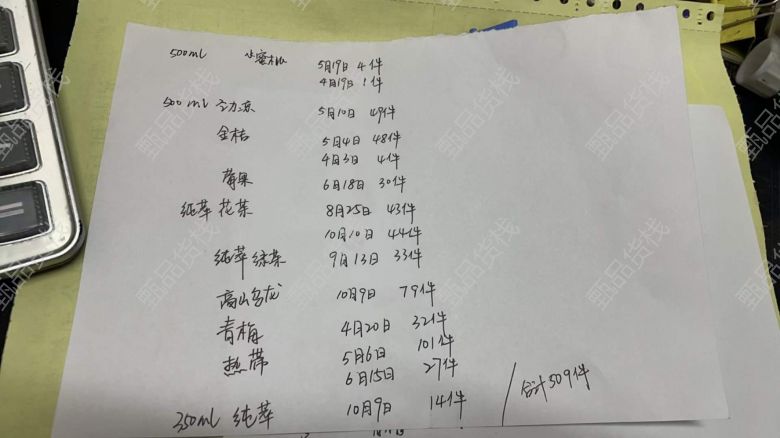 500ml 水蜜桃 5月19日 4件
4月19日 1件
500ml 5月10日 49件
金桔 5月4日 48件
4月3日 4件
莓果 6月18日 30件
纯萃花茶 8月25日 43件
10月10日 44件
纯萃绿茶 9月13日 33件
高山乌龙 10月9日 79件
青梅 4月20日 32件
热带 5月6日 101件
6月15日 27件
350ml 纯萃 10月9日 14件 / 合计509件
甄品货栈